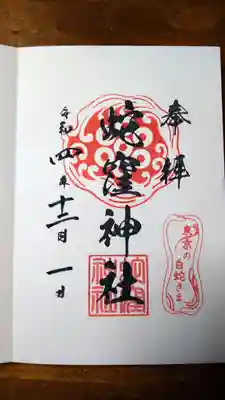 奉拝
蛇窪神社
令和四年十二月一日
東京の白蛇さま